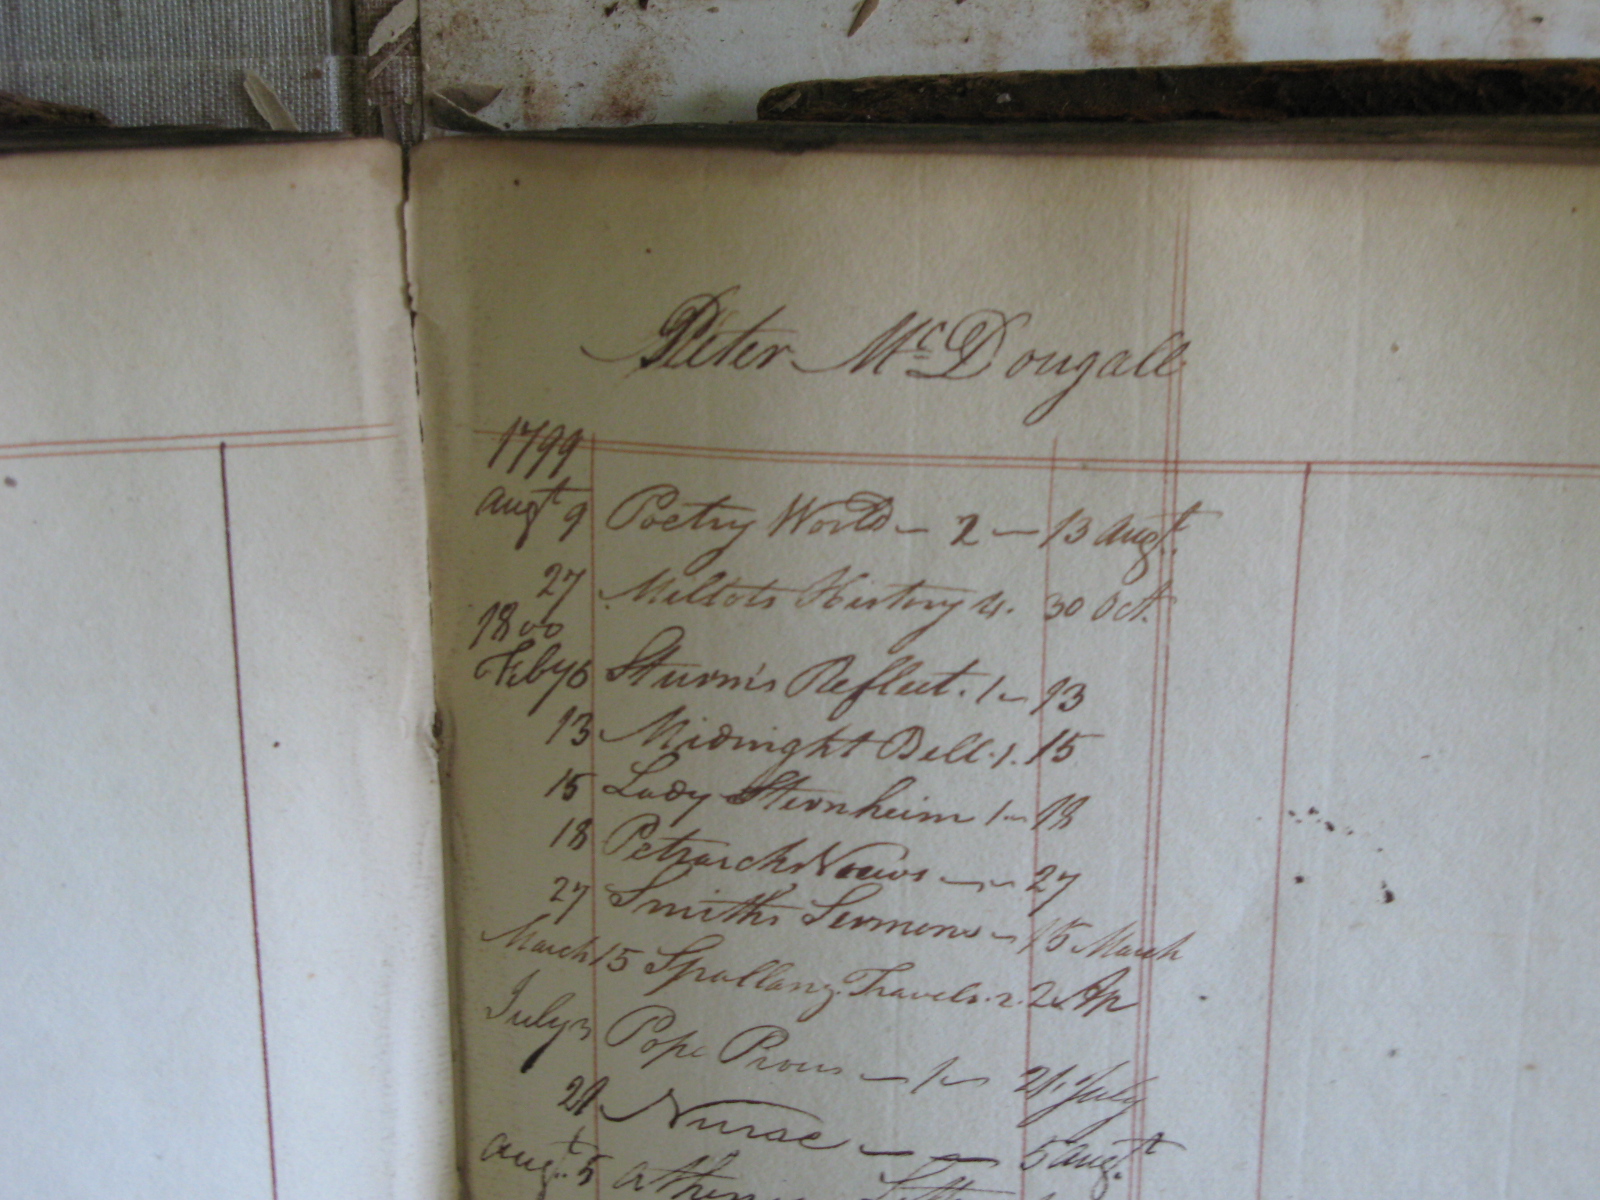 Peter McDougall
1799
augt 9 Poetry World - 2 - 13 augt
27 Millots History 4. 30 Oct.
1800
Feby 6 Sturm's Reflect. 1 - 13
13 Midnight Bell. 1. 15
15 Lady Sternheim 1 - 18
18 Petrarchs Views - 27
27 Smiths Sermons - 15 March
March 15 Spallanz. Travels. 2. 2 Ap
July 3 Pope Prous - 1 - 21 July
21 Nurse - 5 augt
augt. 5